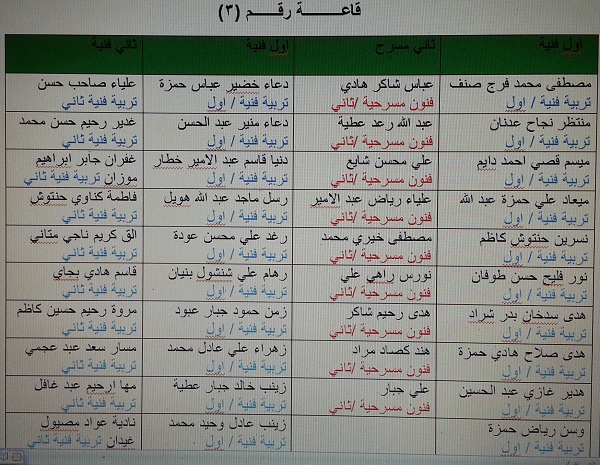 قاعـــــة رقـــم (٣)
اول فنية	ثاني مسرح	اول فنية	ثاني فنية
مصطفى محمد فرج صنف	عباس شاكر هادي	دعاء خضير عباس حمزة	علياء صاحب حسن
تربية فنية / اول	فنون مسرحية /ثاني	تربية فنية / اول	تربية فنية ثاني
منتظر نجاح عدنان	عبد الله رعد عطية	دعاء منير عبد الحسن	غدير رحيم حسن محمد
تربية فنية / اول	فنون مسرحية /ثاني	تربية فنية / اول	تربية فنية ثاني
ميسم قصي احمد دايم	علي محسن شايع	دنيا قاسم عبد الامير خطار	غفران جابر ابراهيم
تربية فنية / اول	فنون مسرحية /ثاني	تربية فنية / اول	موزان تربية فنية ثاني
ميعاد علي حمزة عبد الله	علياء رياض عبد الامير	رسل ماجد عبد الله هويل	فاطمة كناوي حنتوش
تربية فنية / اول	فنون مسرحية /ثاني	تربية فنية / اول	تربية فنية ثاني
نسرين حنتوش كاظم	مصطفى خيري محمد	رغد علي محسن عودة	الق كريم ناجي متاني
تربية فنية / اول	فنون مسرحية /ثاني	تربية فنية / اول	تربية فنية ثاني
نور فليح حسن طوفان	نورس راهي علي	رهام علي شنشول بنيان	قاسم هادي بجاي
تربية فنية / اول	فنون مسرحية /ثاني	تربية فنية / اول	تربية فنية ثاني
هدى سدخان بدر شراد	هدى رحيم شاكر	زمن حمود جبار عبود	مروة رحيم حسين كاظم
تربية فنية / اول	فنون مسرحية /ثاني	تربية فنية / اول	تربية فنية ثاني
هدى صلاح هادي حمزة	هند كصاد مراد	زهراء علي عادل محمد	مسار سعد عبد عجمي
تربية فنية / اول	فنون مسرحية /ثاني	تربية فنية / اول	تربية فنية ثاني
هدير غازي عبد الحسين	علي جبار	زينب خالد جبار عطية	مها ارحيم عبد غافل
تربية فنية / اول	فنون مسرحية /ثاني	تربية فنية / اول	تربية فنية ثاني
وسن رياض حمزة	زينب عادل وحيد محمد	نادية عواد مصيول
تربية فنية / اول	تربية فنية / اول	غيدان تربية فنية ثاني